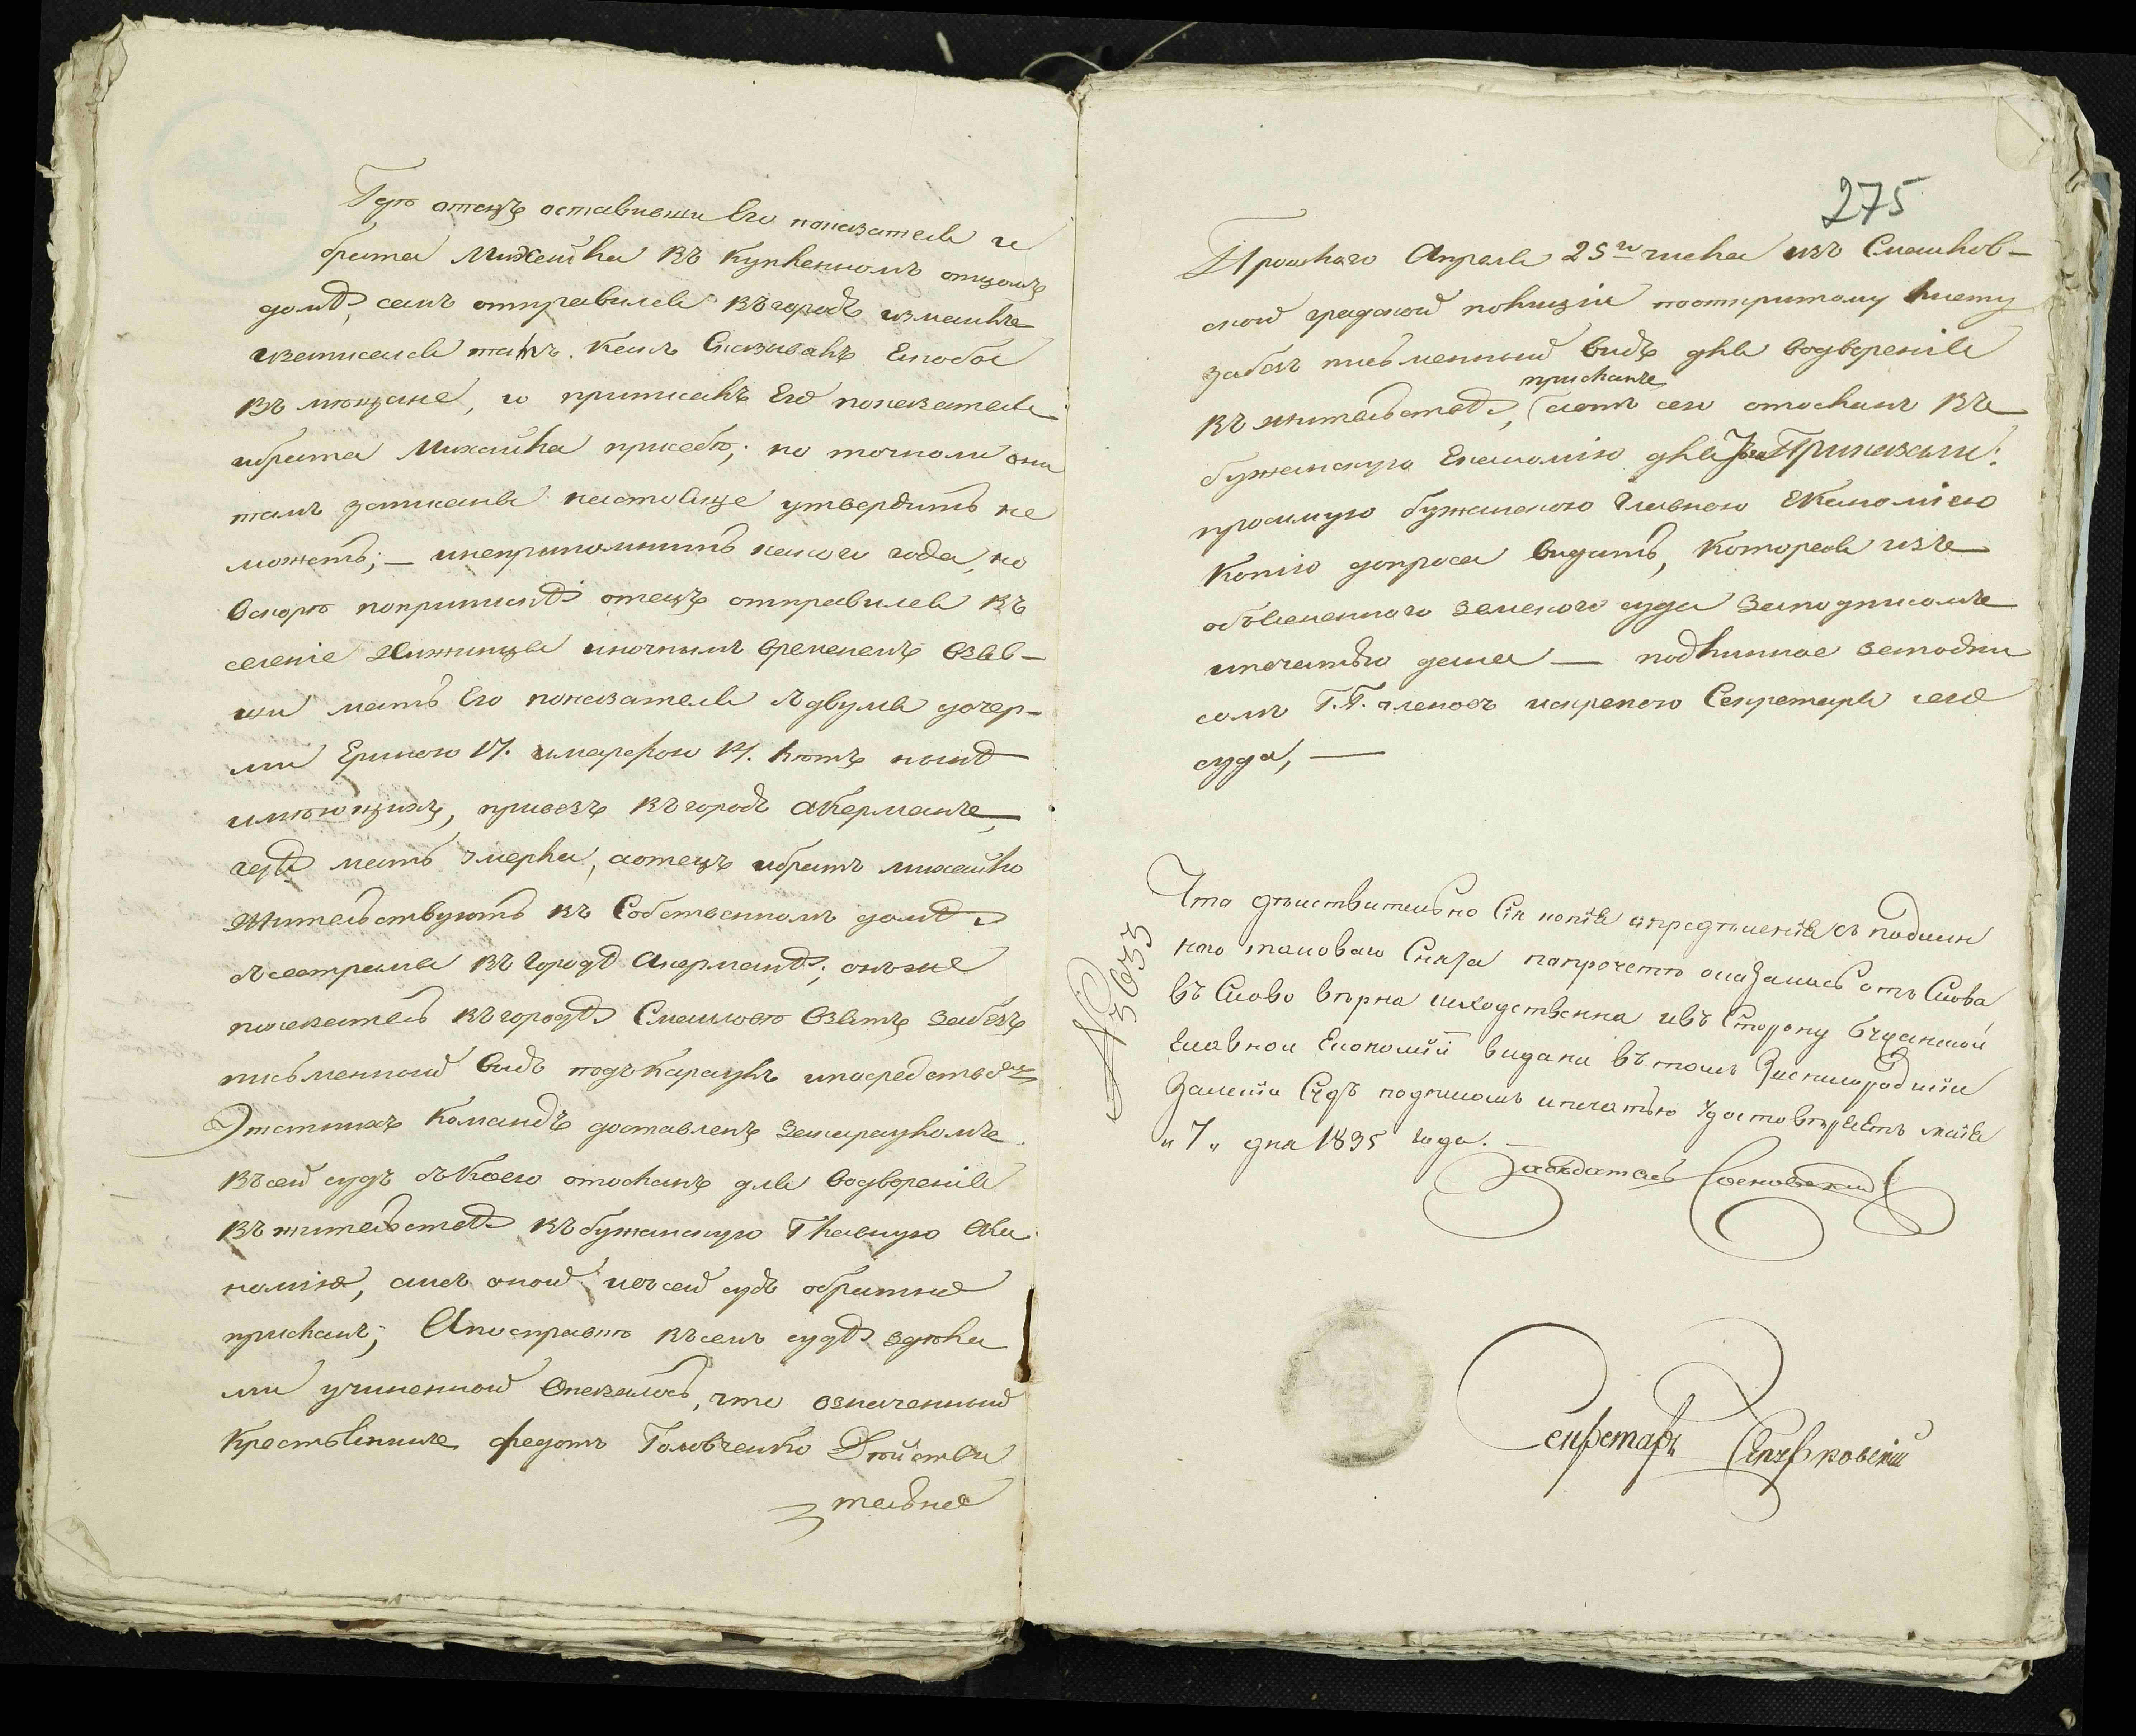 отецъ оставивши Его показателя и
брата Михайла въ купленномъ отцомъ
домѣ, самъ отправился въ городъ измаилъ
изаписался тамъ какъ сказывалъ Емобы
въ мѣщане, и приписалъ Его показателя
ибрата Михайла присебѣ; но точноли они
тамъ записаны настояще утвердить не
можетъ; — инеприпомнитъ какого года, но
вскорѣ поприпискѣ отецъ отправился въ
селеніе ипочнымъ временемъ взяв-
ши мать Его показателя здвумя дочер-
ми Ериною 17. имарфою 14. лѣтъ нынѣ
имѣющихъ, привезъ въгородъ акерманъ,
гдѣ мать умерла, аотецъ ибратъ михайло
жительствуютъ въ Собственномъ домѣ
зъсестрами въ городѣ Акерманѣ; онъже
показатель въгородѣ взятъ забезъ
письменной видъ подъкараулъ ипосредствомъ
Этапныхъ командъ доставленъ закарауломъ
въсей судъ съкоего отосланъ для водворенія
въ жительствѣ въбужанскую Главную Эко
номію, аизъ оной ивъсей судъ обратно
присланъ; Апосправкѣ въсемъ судѣ здѣла
ми учиненной Оказалось, что означенный
Крестьянинъ федотъ Головченко Дѣйстви
тельно
275
Прошлаго Апреля 25го числа изъ Смаилов-
ской градской полиціи пооткритому листу
забезъ письменный видъ для водворенія
присланъ
въ жительствѣ, аотъ сего отосланъ въ
бужанскую Економію для Приказали:
просимую бужанскою Главною Економіею
Копію допроса видать, Которая изъ
объявленного земского суда заподписомъ
ипечатью дана — подлинное заподпи
сомъ Г.Г. членовъ искрепою Секретаря сего
суда, —
№ 3633
Что дѣйствительно Сія копія опредѣленія съ подлин
ного таковаго Снята попрочетѣ оказалась отъ Слова
въ Слово вѣрна исходственна ивъ Сторону Бужанской
Главной Економіи видана въ томъ
Земскій Судъ подписомъ ипечатью Удостовѣряетъ маія
„7„ дня 1835 года. —
Засѣдатель Сосновскій
Секретарь